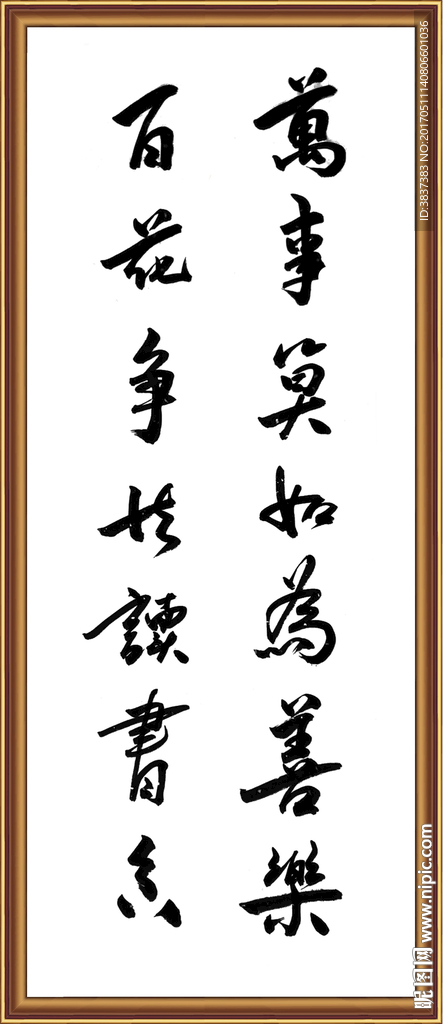 萬事莫如為善樂
百花争比讀書香
ID:3837383 NO:20170511140806601036
昵图网 www.nipic.com